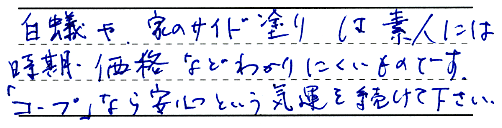 白蟻や、家のサイド塗りは素人には
時期・価格などわかりにくいものです。
「コープ」なら安心という気運を続けて下さい。